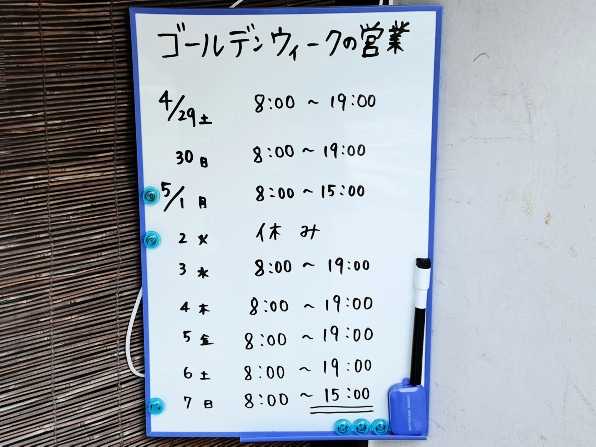 ゴールデンウィークの営業
4/29土 8:00 ～ 19:00
30日 8:00 ～ 19:00
5/1月 8:00 ～ 15:00
2火 休み
3水 8:00 ～ 19:00
4木 8:00 ～ 19:00
5金 8:00 ～ 19:00
6土 8:00 ～ 19:00
7日 8:00 ～ 15:00